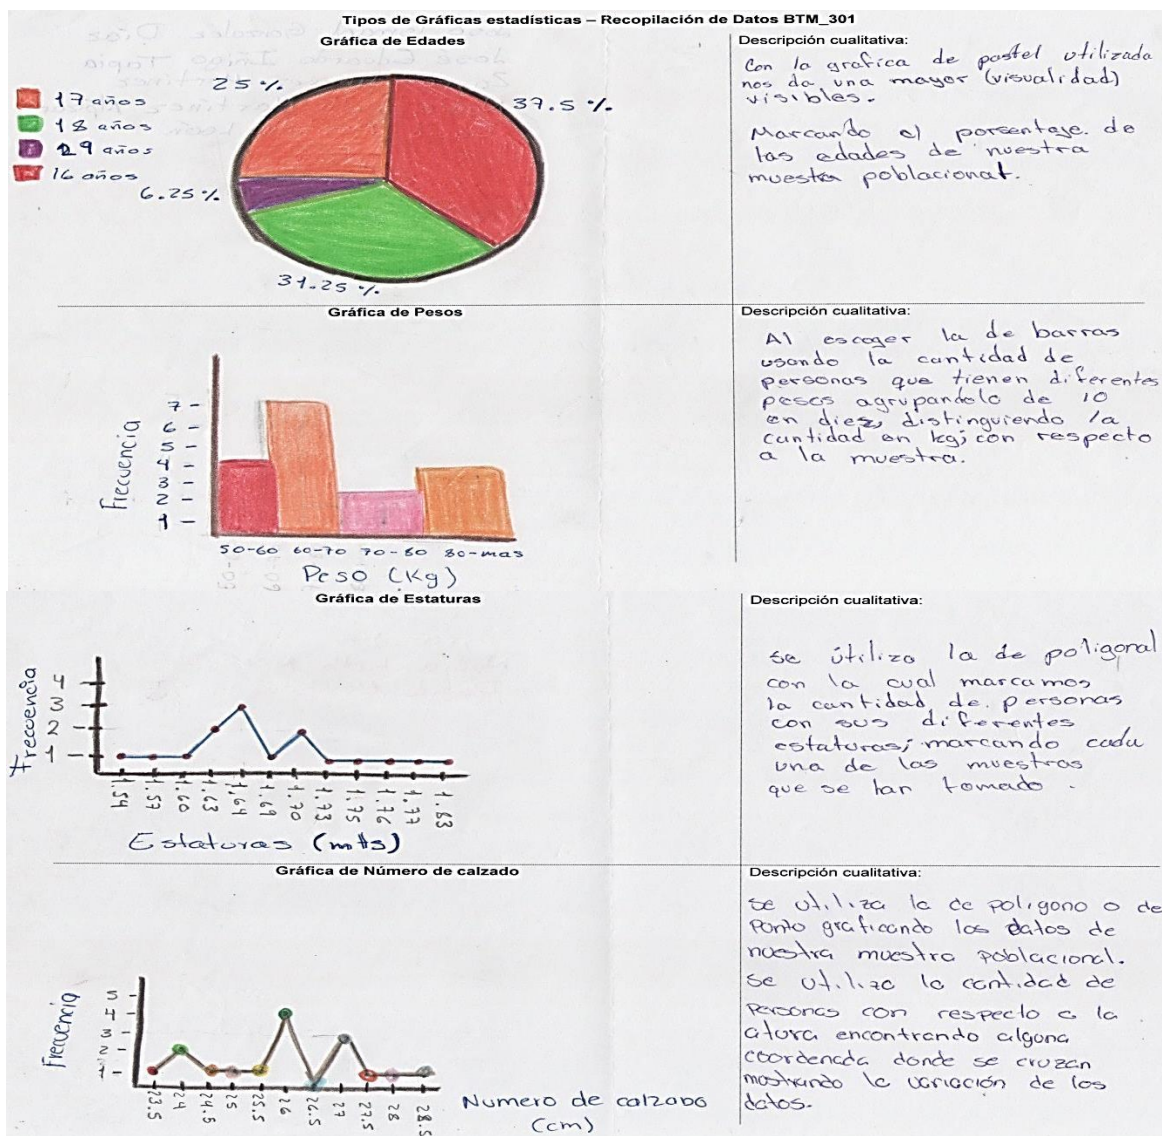 Tipos de Gráficas estadísticas – Recopilación de Datos BTM_301
Gráfica de Edades
25 %
37.5 %
17 años
18 años
29 años
16 años
6.25 %
31.25 %
Descripción cualitativa:
Con la grafica de pastel utilizada
nos da una mayor (visualidad)
visibles.
Marcando el porsentaje. de
las edades de nuestra
muestra poblacional.
Gráfica de Pesos
Frecuencia
7
6
5
4
3
2
1
50-60 60-70 70-80 80-mas
Peso (Kg)
Descripción cualitativa:
Al escoger la de barras
usando la cantidad de
personas que tienen diferentes
pesos agrupandolo de 10
en diez, distinguiendo la
cantidad en kg; con respecto
a la muestra.
Gráfica de Estaturas
Frecuencia
4
3
2
1
1.54 1.57 1.60 1.63 1.64 1.69 1.70 1.73 1.75 1.76 1.77 1.83
Estaturas (mts)
Descripción cualitativa:
se útilizo la de poligonal
con la cual marcamos
la cantidad de personas
con sus diferentes
estaturas; marcando cada
una de las muestras
que se han tomado.
Gráfica de Número de calzado
Frecuencia
5
4
3
2
1
23.5 24 24.5 25 25.5 26 26.5 27 27.5 28 28.5
Numero de calzado
(cm)
Descripción cualitativa:
se utiliza la de poligono o de
Punto graficando los datos de
nuestra muestra Poblacional.
se utilizo la cantidad de
Personas con respecto a la
altura encontrando alguna
coordenada donde se cruzan
mostrando la variación de los
datos.